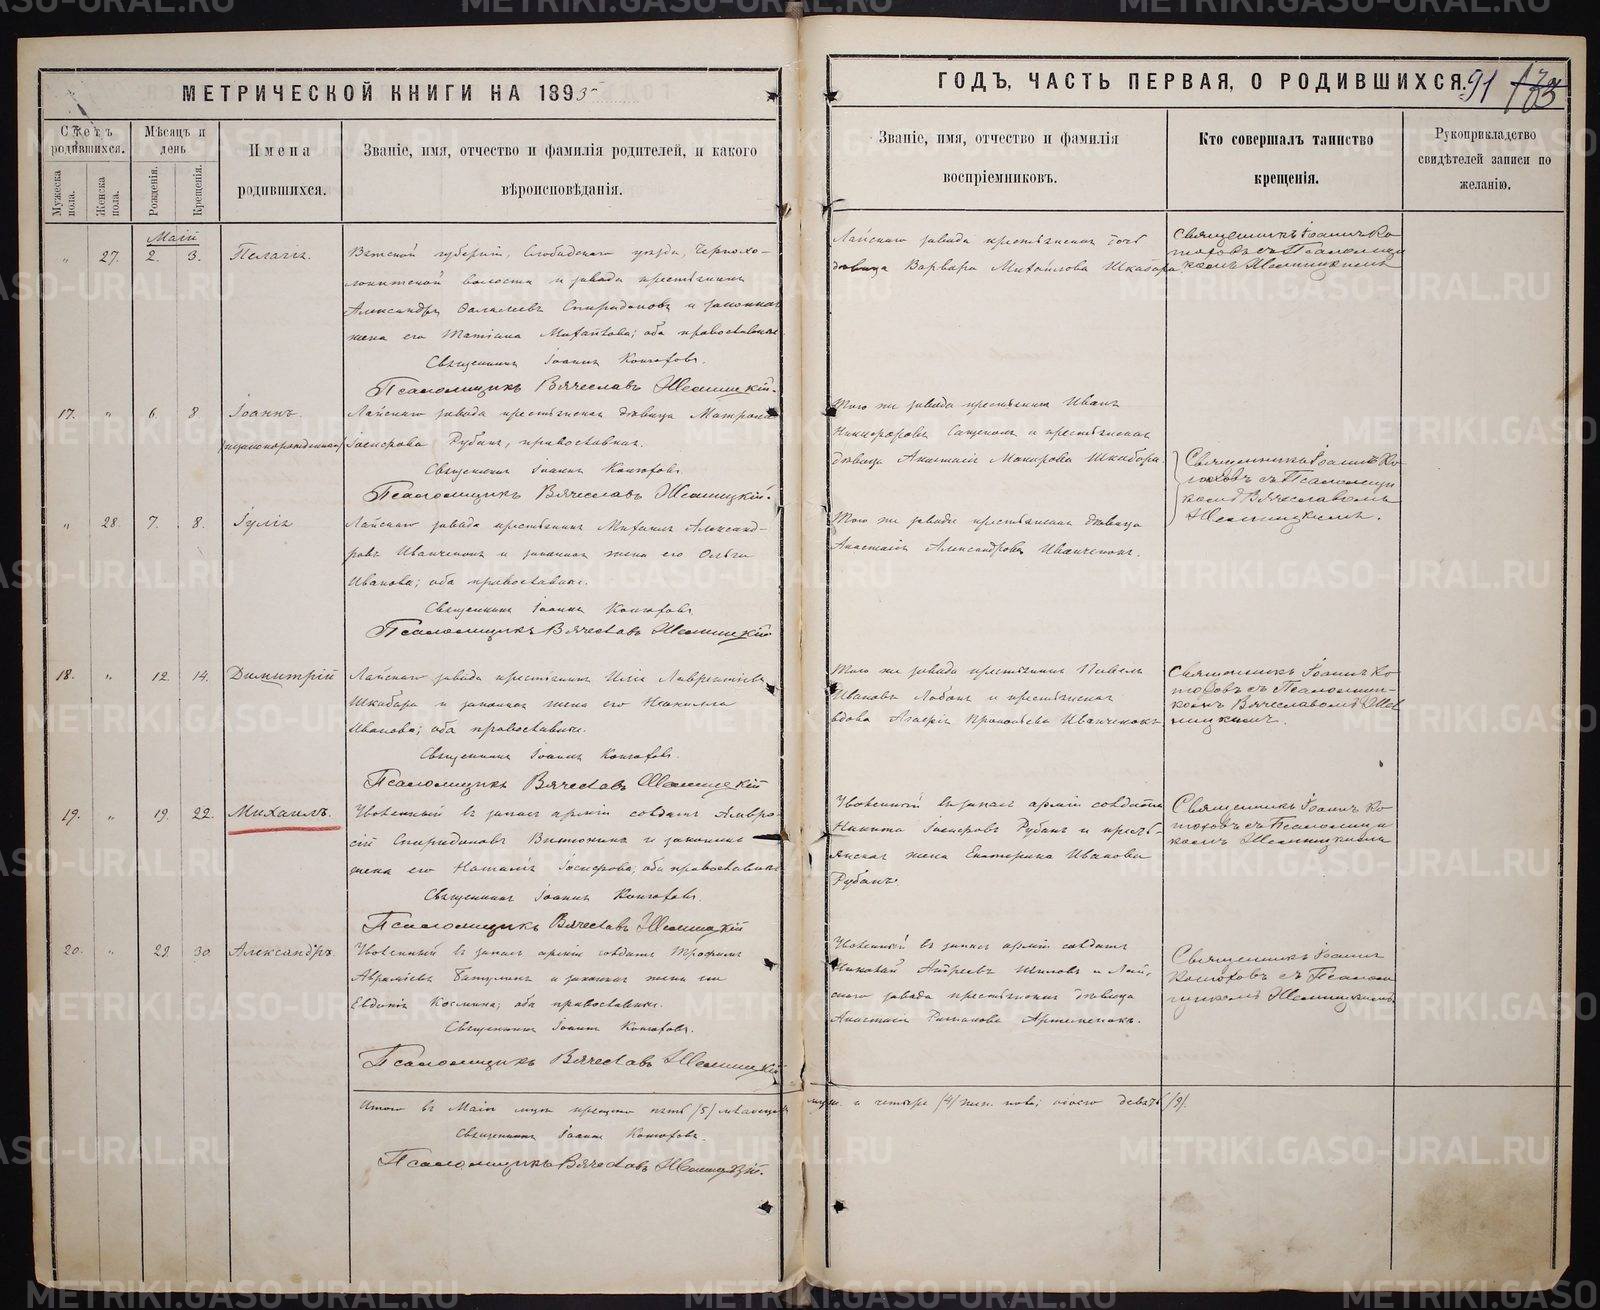 МЕТРИЧЕСКОЙ КНИГИ НА 1895
ГОДЪ, ЧАСТЬ ПЕРВАЯ, О РОДИВШИХСЯ.
91 173
Счетъ родившихся.
Мужеска пола.
Женска пола.
Мѣсяцъ и день
Рожденія.
Крещенія.
Имена родившихся.
Званіе, имя, отчество и фамилія родителей, и какого вѣроисповѣданія.
Званіе, имя, отчество и фамилія воспріемниковъ.
Кто совершалъ таинство крещенія.
Рукоприкладство свидѣтелей записи по желанію.
Маій
" 27. 2. 3. Пелагія.
Вятской губерніи, Слободского уѣзда, Чернохо-
луницкой волости и завода крестьянинъ
Александръ Спиридоновъ и законная
жена его Татіана Михайлова; оба православные
Священникъ Іоаннъ Конюховъ.
Псаломщикъ Вячеславъ
Лайскаго завода крестьянская дочь
дѣвица Варвара Михайлова Шкабара
Священникъ Іоаннъ Ко-
нюховъ съ Псаломщи
комъ
17. " 6. 8. Іоаннъ.
(незаконнорожденный)
Лайскаго завода крестьянская дѣвица Матрона
Іосифова Рубанъ, православная.
Священникъ Іоаннъ Конюховъ.
Псаломщикъ Вячеславъ
Того же завода крестьянинъ Иванъ
Никифоровъ и крестьянская
дѣвица Анастасія Макарова Шкабара
Священникъ Іоаннъ Ко-
нюховъ съ Псаломщи
комъ Вячеславомъ
" 28. 7. 8. Іулія
Лайскаго завода крестьянинъ Михаилъ Александ-
ровъ Иванченокъ и законная жена его Ольга
Иванова; оба православные.
Священникъ Іоаннъ Конюховъ
Псаломщикъ Вячеславъ
Того же завода крестьянская дѣвица
Анастасія Александрова Иванченокъ.
18. " 12. 14. Димитрій
Лайскаго завода крестьянинъ Илія Лаврентіевъ
Шкабара и законная жена его Неонилла
Иванова; оба православные.
Священникъ Іоаннъ Конюховъ.
Псаломщикъ Вячеславъ
Того же завода крестьянинъ Павелъ
Ивановъ Лобанъ и крестьянская
вдова Агафія Прокопьева Иванченокъ
Священникъ Іоаннъ Ко
нюховъ съ Псаломщи-
комъ Вячеславомъ
19. " 19. 22. Михаилъ.
Уволенный въ запасъ арміи солдатъ Амвро
сій Спиридоновъ и законная
жена его Наталія Іосифова; оба православные
Священникъ Іоаннъ Конюховъ.
Псаломщикъ Вячеславъ
Уволенный въ запасъ арміи солдатъ
Никита Іосифовъ Рубанъ и кресть-
янская жена Екатерина Иванова
Рубанъ.
Священникъ Іоаннъ Ко
нюховъ съ Псаломщи
комъ
20. " 29. 30. Александръ.
Уволенный въ запасъ арміи солдатъ Трофимъ
Авраміевъ и законная жена его
Евдокія Космина; оба православные.
Священникъ Іоаннъ Конюховъ.
Псаломщикъ Вячеславъ
Уволенный въ запасъ арміи солдатъ
Николай Андреевъ Шиловъ и Лай-
скаго завода крестьянская дѣвица
Анастасія Романова Артеменокъ.
Священникъ Іоаннъ
Конюховъ съ Псалом
щикомъ
Итого въ Маіи мцѣ крещено пять /5/ младенцевъ муж. и четыре /4/ жен. пола; обоего девять /9/.
Священникъ Іоаннъ Конюховъ.
Псаломщикъ Вячеславъ
METRIKI.GASO-URAL.RU